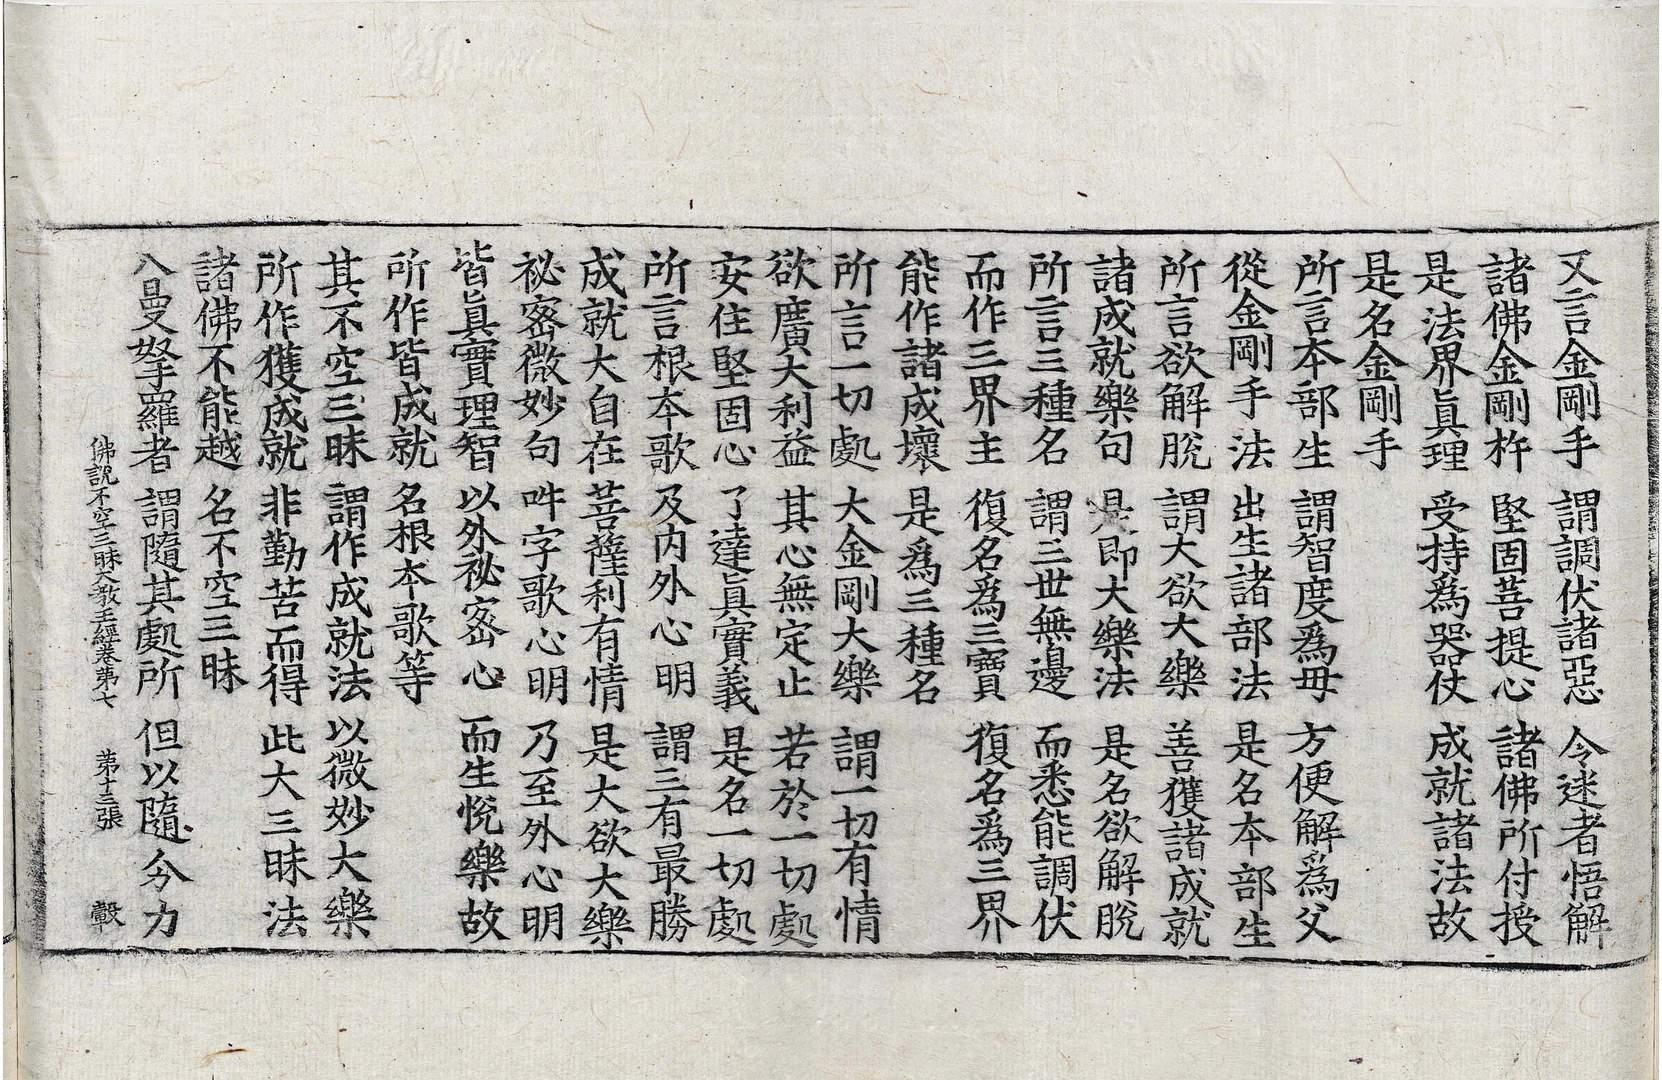 又言金剛手　謂調伏諸惡　令迷者悟解
諸佛金剛杵　堅固菩提心　諸佛所付授
是法界眞理　受持爲器仗　成就諸法故
是名金剛手
所言本部生　謂智度爲母　方便解爲父
從金剛手法　出生諸部法　是名本部生
所言欲解脫　謂大欲大樂　善獲諸成就
諸成就樂句　是即大樂法　是名欲解脫
所言三種名　謂三世無邊　而悉能調伏
而作三界主　復名爲三寶　復名爲三界
能作諸成壞　是爲三種名
所言一切處　大金剛大樂　謂一切有情
欲廣大利益　其心無定止　若於一切處
安住堅固心　了達眞實義　是名一切處
所言根本歌　及內外心明　謂三有最勝
成就大自在　菩薩利有情　是大欲大樂
祕密微妙句　吽字歌心明　乃至外心明
皆眞實理智　以外祕密心　而生悅樂故
所作皆成就　名根本歌等
其不空三昧　謂作成就法　以微妙大樂
所作獲成就　非勤苦而得　此大三昧法
諸佛不能越　名不空三昧
八曼拏羅者　謂隨其處所　但以隨分力
佛說不空三昧大教王經卷第七　第十三張　轂